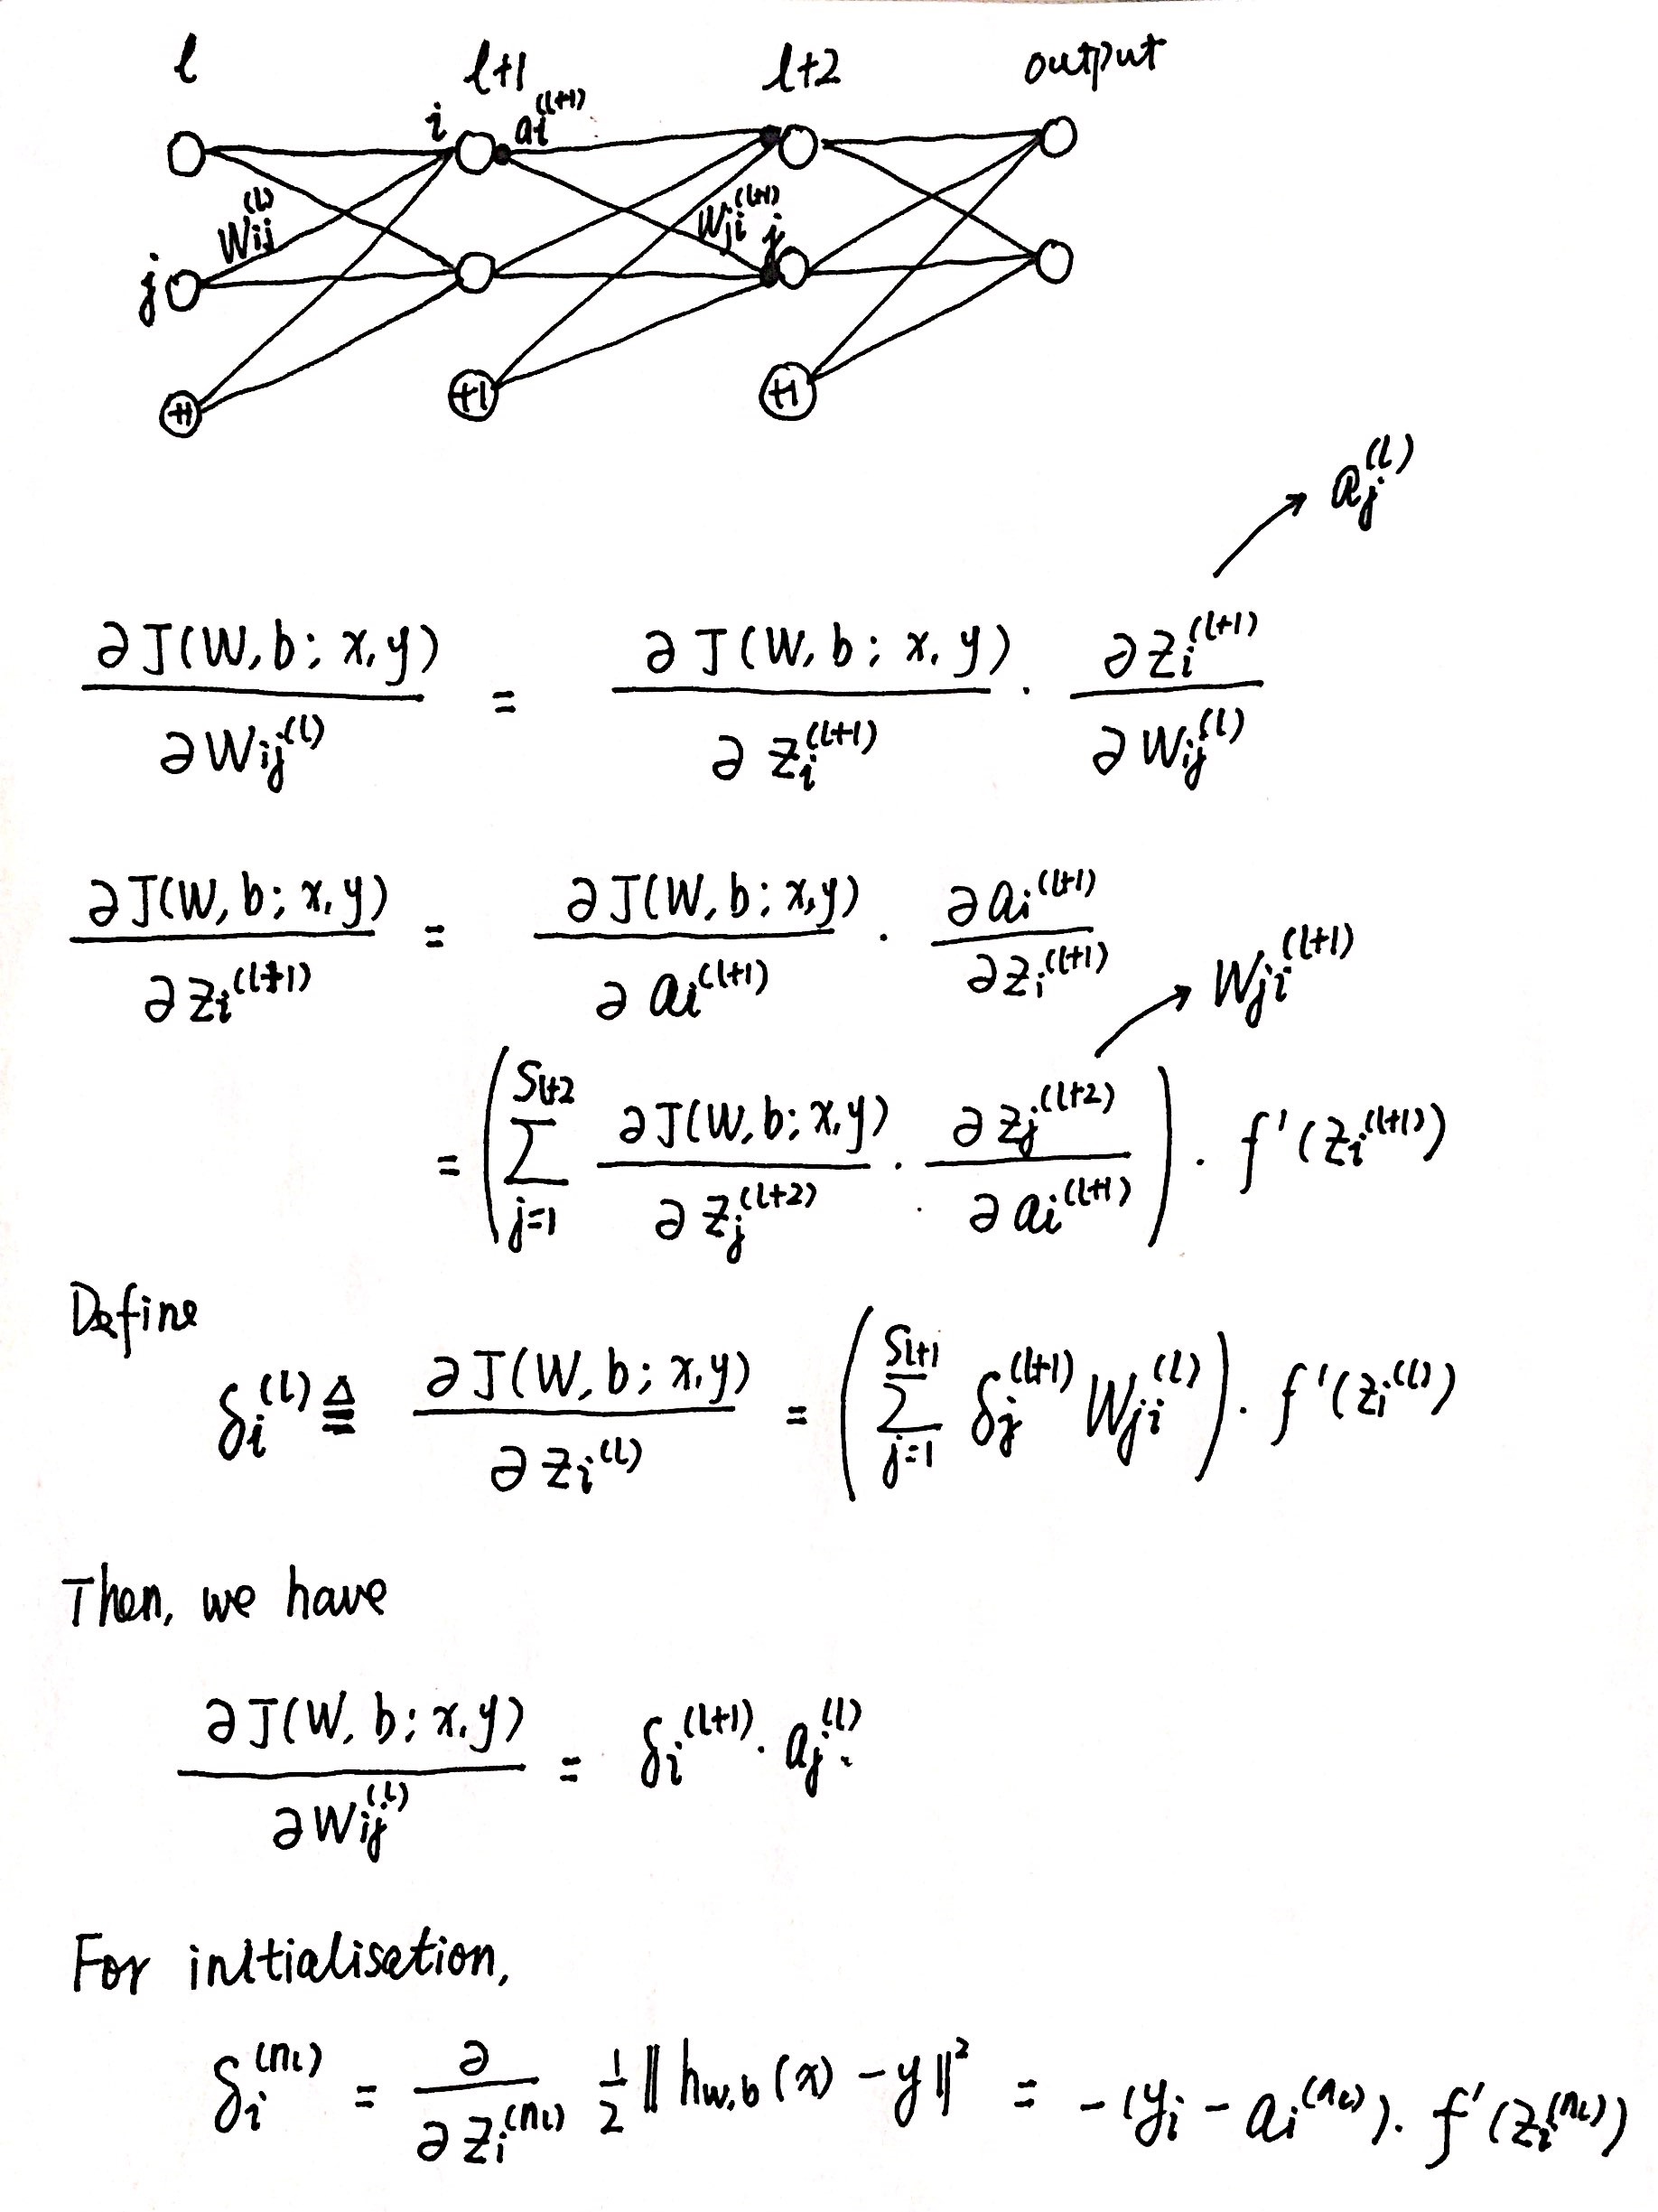 l l+1 l+2 output
i a_i^{(l+1)}
W_{ij}^{(l)} W_{ji}^{(l+1)} j
j
+1 +1 +1
a_j^{(l)}
∂J(W,b; x,y) / ∂W_{ij}^{(l)} = ∂J(W,b; x,y) / ∂z_i^{(l+1)} · ∂z_i^{(l+1)} / ∂W_{ij}^{(l)}
∂J(W,b; x,y) / ∂z_i^{(l+1)} = ∂J(W,b; x,y) / ∂a_i^{(l+1)} · ∂a_i^{(l+1)} / ∂z_i^{(l+1)}
W_{ji}^{(l+1)}
= ( Σ_{j=1}^{S_{l+2}} ∂J(W,b; x,y) / ∂z_j^{(l+2)} · ∂z_j^{(l+2)} / ∂a_i^{(l+1)} ) · f'(z_i^{(l+1)})
Define
δ_i^{(l)} ≜ ∂J(W,b; x,y) / ∂z_i^{(l)} = ( Σ_{j=1}^{S_{l+1}} δ_j^{(l+1)} W_{ji}^{(l)} ) · f'(z_i^{(l)})
Then, we have
∂J(W,b; x,y) / ∂W_{ij}^{(l)} = δ_i^{(l+1)} · a_j^{(l)}.
For initialisation,
δ_i^{(n_l)} = ∂ / ∂z_i^{(n_l)} 1/2 ‖h_{w,b}(x) − y‖^2 = −(y_i − a_i^{(n_l)}) · f'(z_i^{(n_l)})